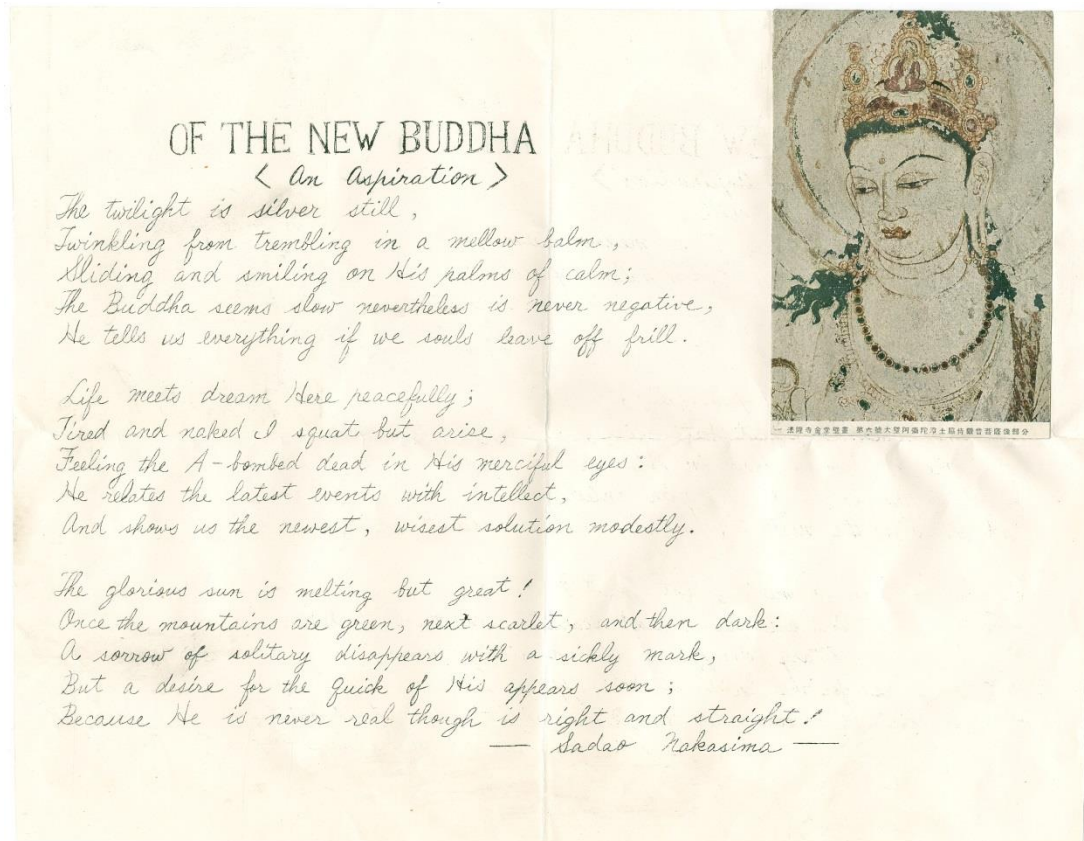 OF THE NEW BUDDHA
< An Aspiration >
The twilight is silver still,
Twinkling from trembling in a mellow balm,
Sliding and smiling on His palms of calm;
The Buddha seems slow nevertheless is never negative,
He tells us everything if we souls leave off frill.
Life meets dream Here peacefully;
Tired and naked I squat but arise,
Feeling the A-bombed dead in His merciful eyes:
He relates the latest events with intellect,
And shows us the newest, wisest solution modestly.
The glorious sun is melting but great!
Once the mountains are green, next scarlet, and then dark:
A sorrow of solitary disappears with a sickly mark,
But a desire for the quick of His appears soon;
Because He is never real though is right and straight!
— Sadao Nakasima —